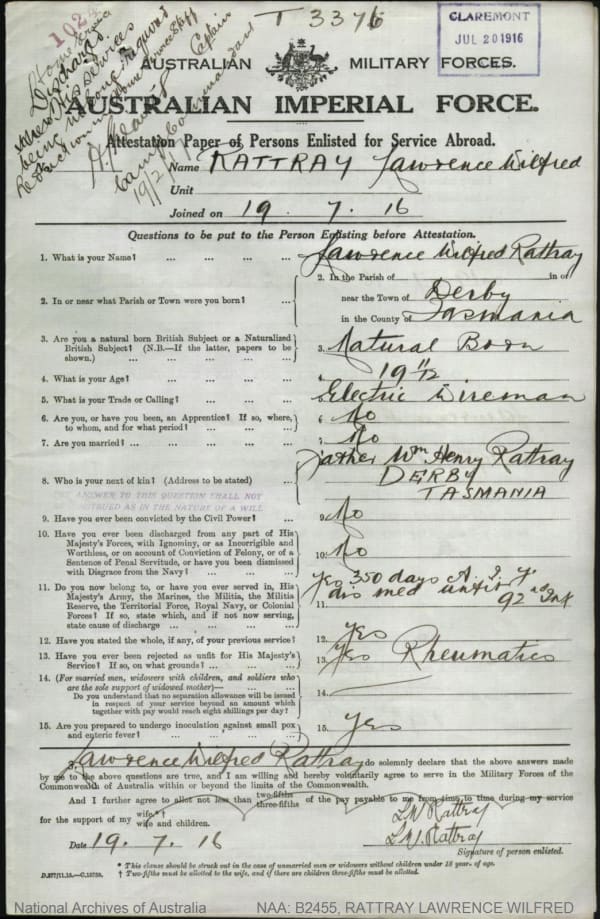 T 3376
CLAREMONT
JUL 20 1916
102
Discharged
Services
being no longer required
Captain
19/2/17
AUSTRALIAN MILITARY FORCES.
AUSTRALIAN IMPERIAL FORCE.
Attestation Paper of Persons Enlisted for Service Abroad.
Name RATTRAY Lawrence Wilfred
Unit
Joined on 19 . 7 . 16
Questions to be put to the Person Enlisting before Attestation.
1. What is your Name? ... ... ... ... Lawrence Wilfred Rattray
2. In or near what Parish or Town were you born? ...
2. In the Parish of in or
near the Town of Derby
in the County of Tasmania
3. Are you a natural born British Subject or a Naturalized
British Subject? (N.B.—If the latter, papers to be
shown.) ... ... ... ... ... 3. Natural Born
4. What is your Age? ... ... ... ... 4. 19 11/12
5. What is your Trade or Calling? ... ... ... Electric Wireman
6. Are you, or have you been, an Apprentice? If so, where,
to whom, and for what period? ... ... ... 6 No
7. Are you married? ... ... ... ... 7. No
8. Who is your next of kin? (Address to be stated) ...
8. Father Wm Henry Rattray
DERBY
TASMANIA
ANSWER TO THIS QUESTION SHALL NOT
STRUED AS IN THE NATURE OF A WILL
9. Have you ever been convicted by the Civil Power? ... 9. No
10. Have you ever been discharged from any part of His
Majesty's Forces, with Ignominy, or as Incorrigible and
Worthless, or on account of Conviction of Felony, or of a
Sentence of Penal Servitude, or have you been dismissed
with Disgrace from the Navy? ... ... ... 10. No
11. Do you now belong to, or have you ever served in, His
Majesty's Army, the Marines, the Militia, the Militia
Reserve, the Territorial Force, Royal Navy, or Colonial
Forces? If so, state which, and if not now serving,
state cause of discharge ... ... ...
11. Yes 350 days A. I. F.
dis med unfit
92nd Inf
12. Have you stated the whole, if any, of your previous service? 12. Yes
13. Have you ever been rejected as unfit for His Majesty's
Service? If so, on what grounds? ... ... 13. Yes Rheumatics
14. (For married men, widowers with children, and soldiers who
are the sole support of widowed mother)—
Do you understand that no separation allowance will be issued
in respect of your service beyond an amount which
together with pay would reach eight shillings per day? 14.
15. Are you prepared to undergo inoculation against small pox
and enteric fever? ... ... ... ... 15. Yes
I, Lawrence Wilfred Rattray do solemnly declare that the above answers made
by me to the above questions are true, and I am willing and hereby voluntarily agree to serve in the Military Forces of the
Commonwealth of Australia within or beyond the limits of the Commonwealth.
And I further agree to allot not less than two-fifths three-fifths of the pay payable to me from time to time during my service
for the support of my wife*† wife and children.
L W Rattray
Date 19. 7. 16 L W Rattray
Signature of person enlisted.
* This clause should be struck out in the case of unmarried men or widowers without children under 18 year. of age.
† Two-fifths must be allotted to the wife, and if there are children three-fifths must be allotted.
D.877/11.15.—C.15750.
National Archives of Australia NAA: B2455, RATTRAY LAWRENCE WILFRED